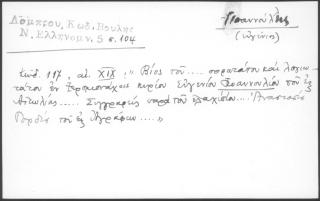 Λάμπρου, Κωδ. Βουλῆς
Ν. Ἑλληνομν. 5 σ. 104
Γιαννούλης
(Εὐγένιος)
Κωδ. 117, αἰ. XIX, "Βίος τοῦ .... σοφωτάτου καὶ λογιω-
τάτου ἐν ἱερομονάχοις κυρίου Εὐγενίου Γιαννούλη τοῦ ἐξ
Αἰτωλίας .... Συγγραφεὶς παρὰ τοῦ ἐλαχίστου .... Ἀναστασίου
Γορδίου τοῦ ἐξ Ἀγράφων ...."